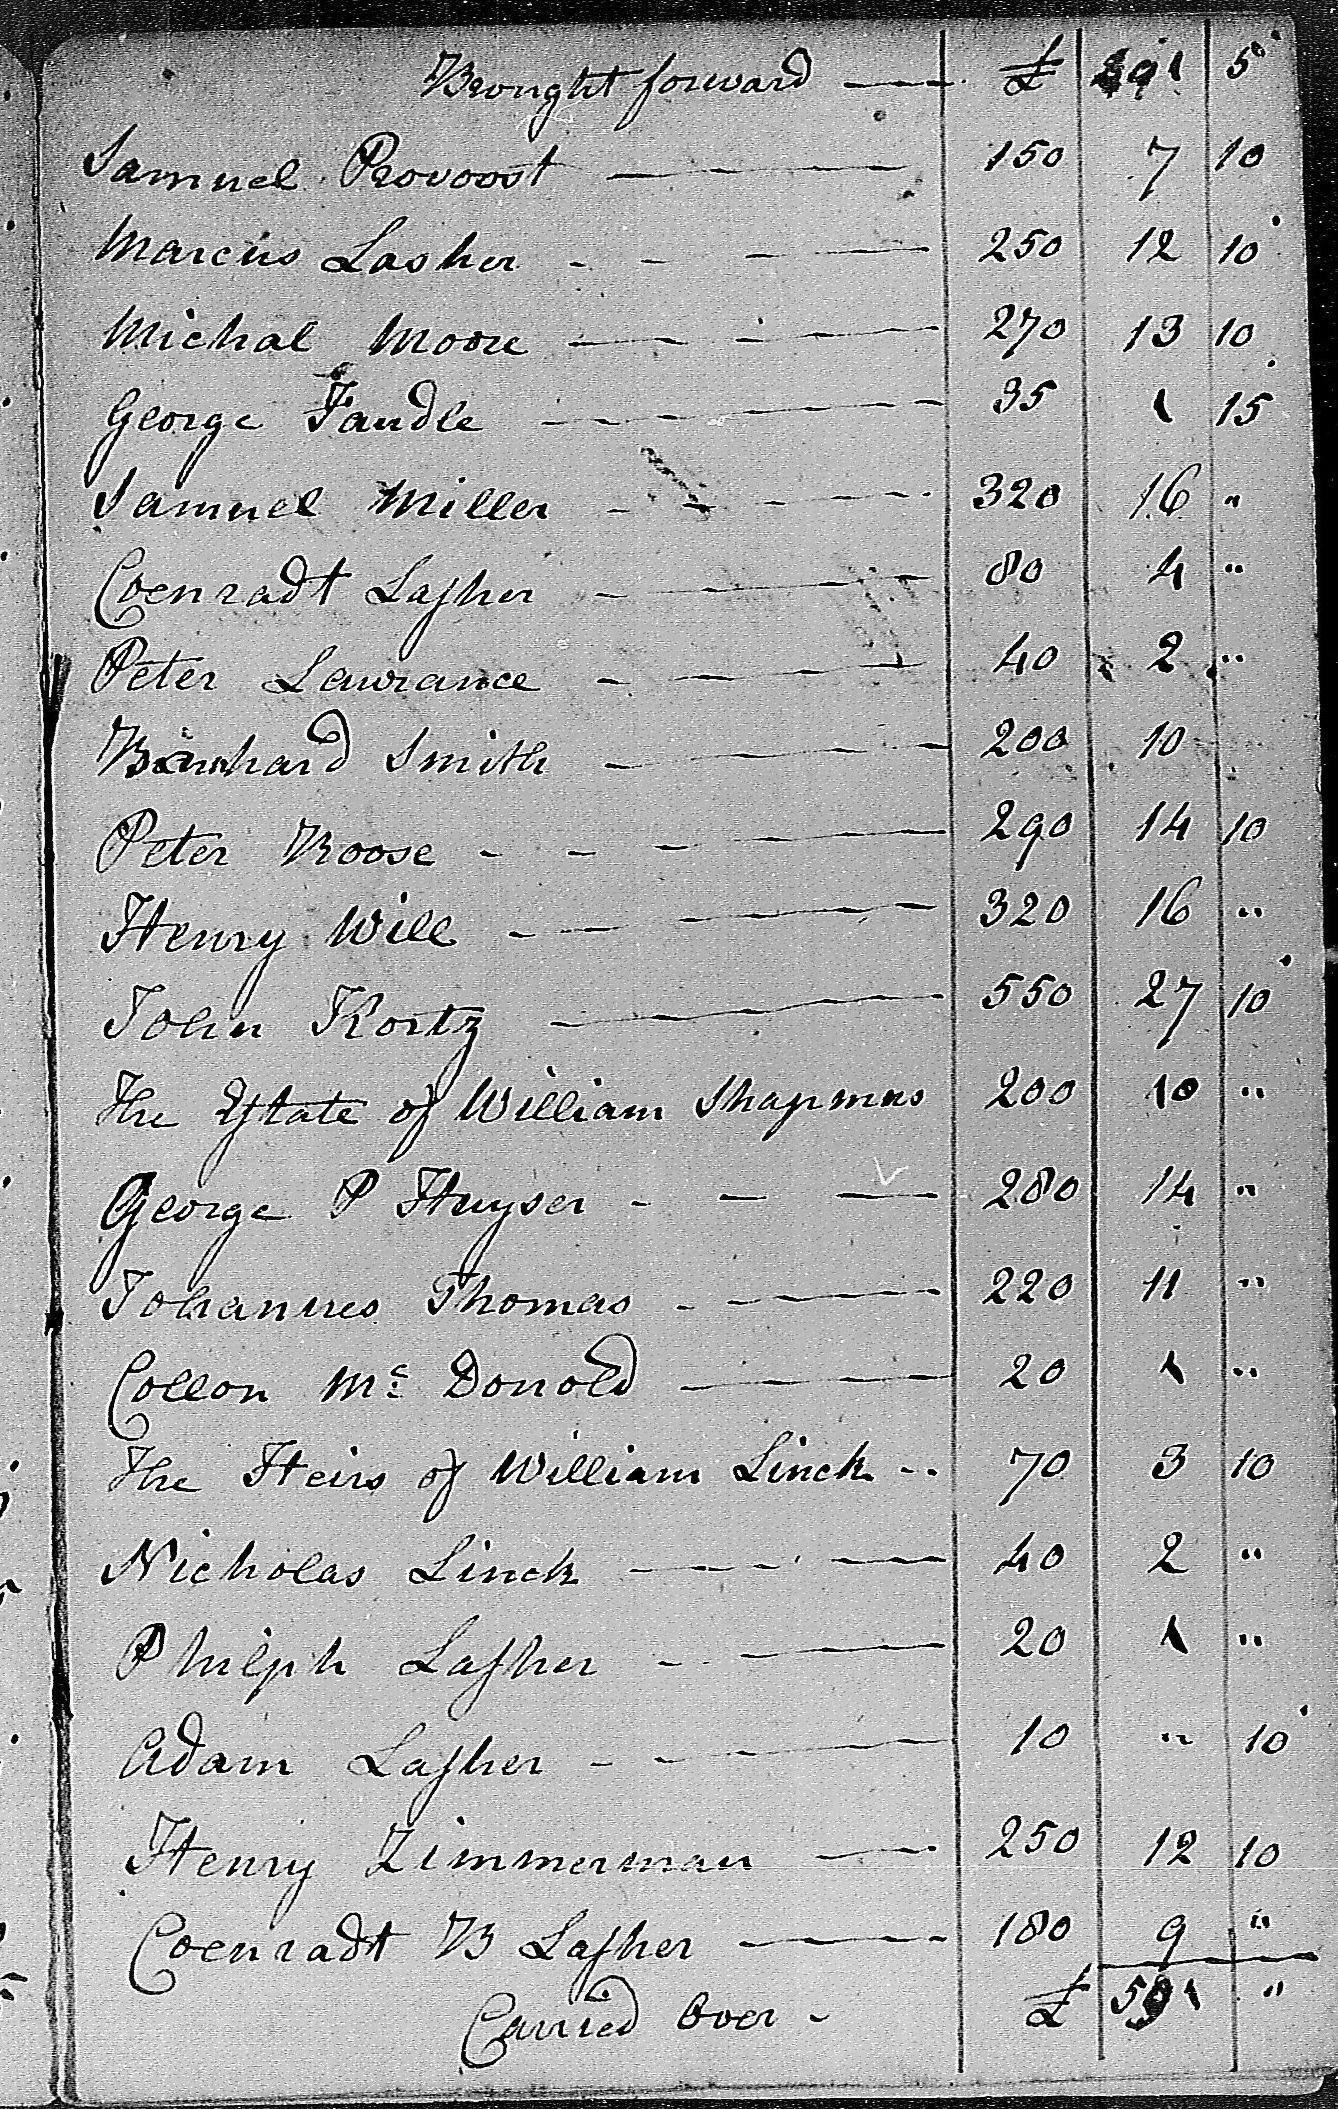 Brought forward — £ 391 5
Samuel Provoost — 150 7 10
Marcus Lasher - - — 250 12 10
Michal Moore — 270 13 10
George Fandle — 35 1 15
Samuel Miller - - — 320 16 "
Coenradt Lasher — 80 4 "
Peter Lawrance — 40 2 "
Barnhard Smith — 200 10
Peter Roose - - — 290 14 10
Henry Will — 320 16 "
John Kortz — 550 27 10
The Estate of William Shapmas 200 10 "
George P Huyser - — 280 14 "
Johannes Thomas - — 220 11 "
Collon Mc Donold — 20 1 "
The Heirs of William Linck -- 70 3 10
Nicholas Linck — 40 2 "
Philph Lasher — 20 1 "
Adam Lasher - — 10 " 10
Henry Zimmerman — 250 12 10
Coenradt B Lasher — 180 9 "
Carried Over - £ 591 "